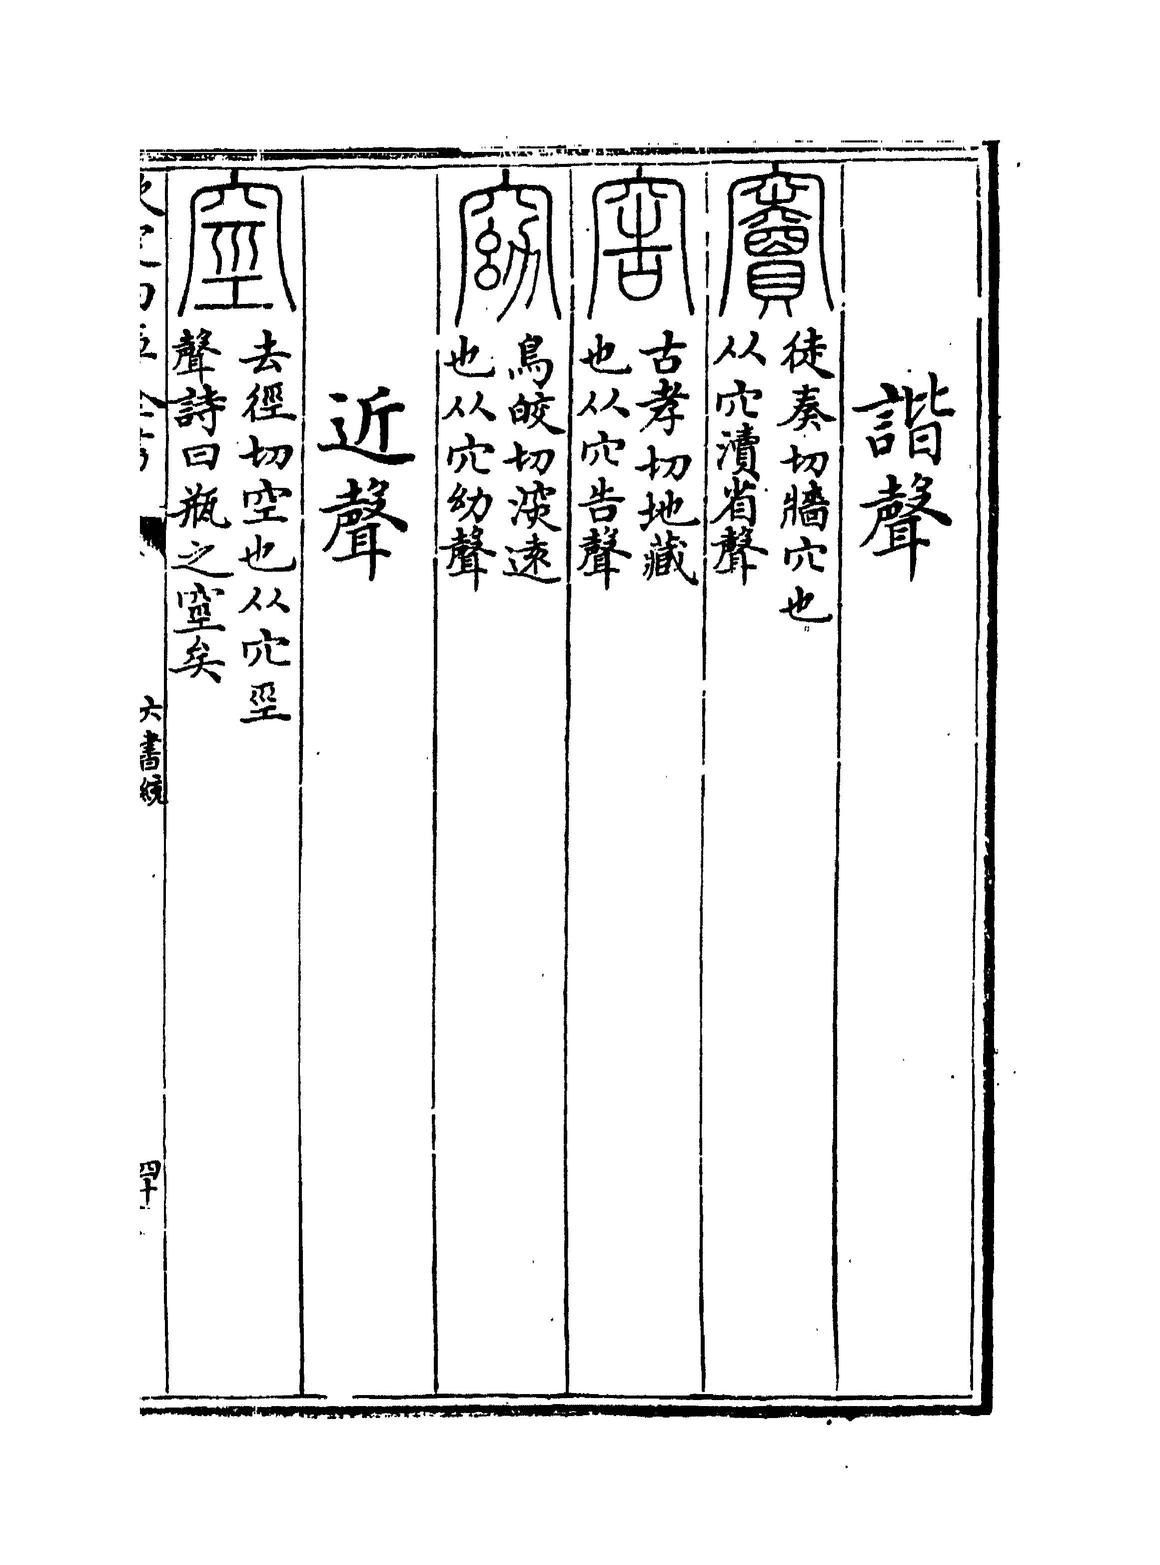 諧聲
竇
徒奏切牆穴也
从穴瀆省聲
窖
古孝切地藏
也从穴告聲
窈
烏皎切深遠
也从穴幼聲
近聲
窒
去徑切空也从穴巠
聲詩曰瓶之窒矣
六書統
四十